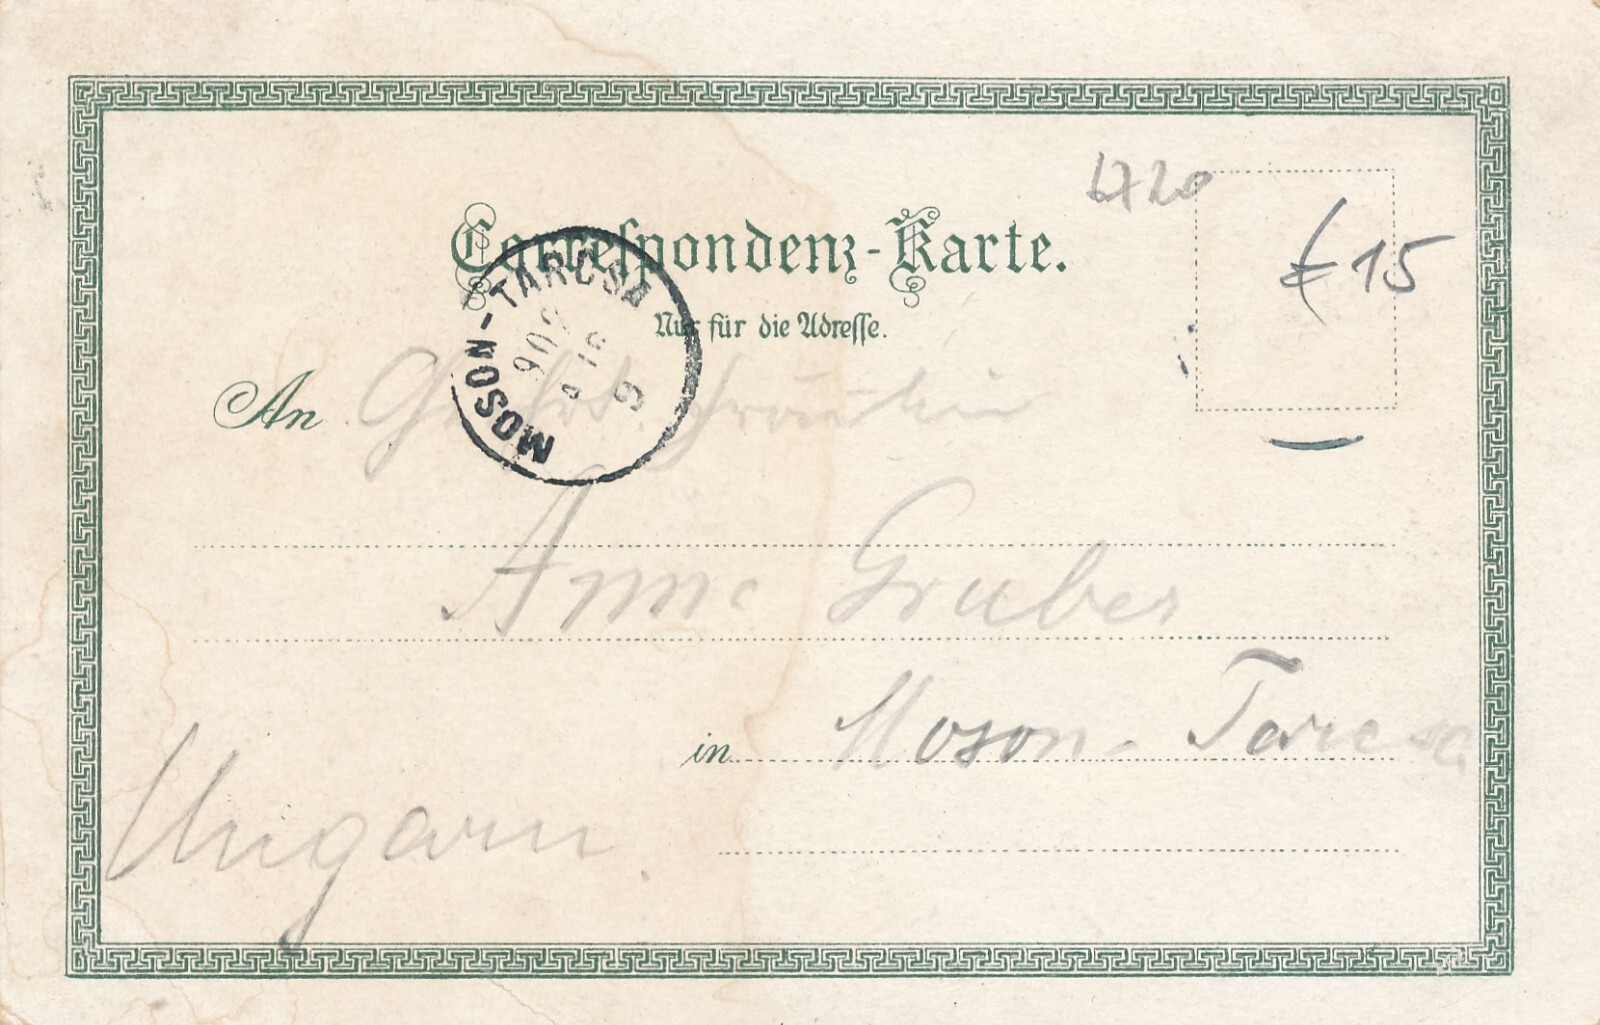 6720
€15
Correspondenz-Karte.
Nur für die Adresse.
MOSON-TARCSA
902
9
An Geehrt. Fräulein
Anna Gruber
in Moson-Tarcsa
Ungarn.